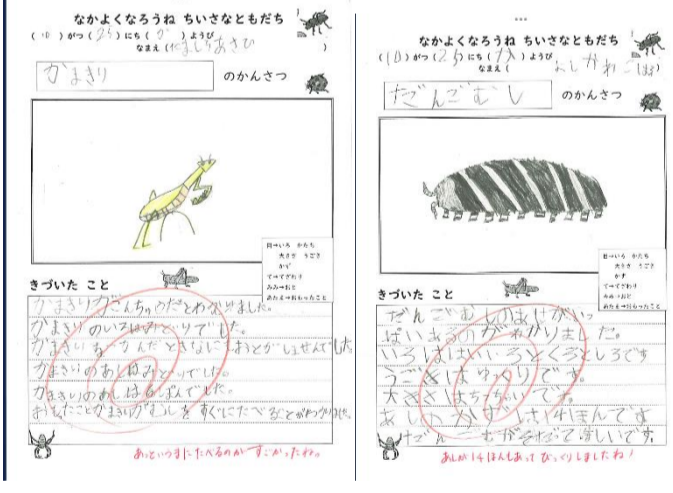 なかよくなろうね ちいさなともだち
(10) がつ (25) にち ( ) ようび
なまえ ( )
かまきり のかんさつ
目→いろ かたち
大きさ うごき
かず
て→てざわり
みみ→おと
あたま→おもったこと
きづいた こと
かまきりがこんちゅうだとわかりました。
かまきりのいろはみどりでした。
かまきりをつかんだときなにもおとがしませんでした。
かまきりのあしはみどりでした。
かまきりのあしは ぽんでした。
おもったことかまきりがむしをすぐにたべることがわかりました。
あっというまにたべるのがすごかったね。
なかよくなろうね ちいさなともだち
(10) がつ (25) にち ( ) ようび
なまえ ( )
だんごむし のかんさつ
目→いろ かたち
大きさ うごき
かず
て→てざわり
みみ→おと
あたま→おもったこと
きづいた こと
だんごむしのあしがいっ
ぱいあるのがわかりました。
いろははいいろとくろとしろです
うごきはゆっくりです。
大きさはちっちゃいです。
あしのかずは14ほんです
あしが14ほんもあってびっくりしましたね!